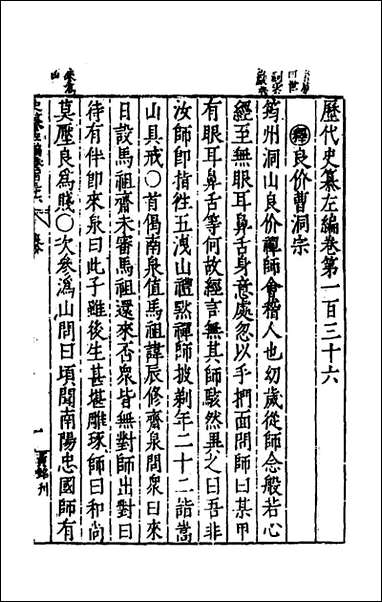 歷代史纂左編卷第一百三十六
釋良价曹洞宗
筠州洞山良价禪師會稽人也幼歲從師念般若心
經至無眼耳鼻舌身意處忽以手捫面問師曰某甲
有眼耳鼻舌等何故經言無其師駭然異之曰吾非
汝師即指徃五洩山禮黙禪師披剃年二十二詣嵩
山具戒〇首偈南泉值馬祖諱辰修齋泉問衆曰來
日設馬祖齋未審馬祖還來否衆皆無對師出對曰
待有伴即來泉曰此子雖後生甚堪雕琢師曰和尚
莫壓良爲賤〇次參溈山問曰頃聞南陽忠國師有